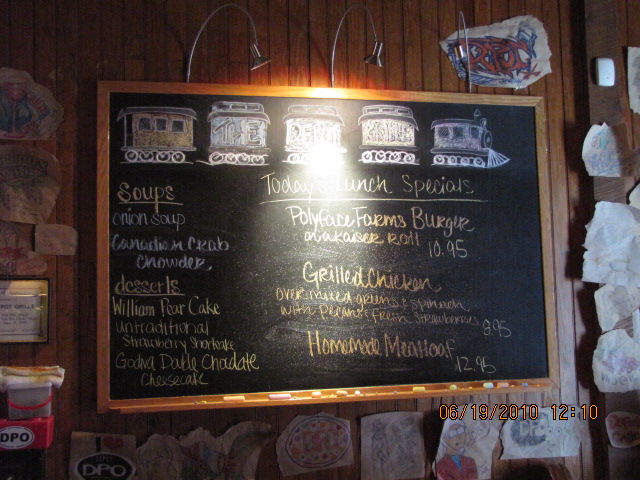 Soups
onion soup
Canadian Crab
Chowder,
desserts
William Pear Cake
untraditional
Strawberry Shortcake
Godiva Double Chocolate
Cheesecake
Today's Lunch Specials
Polyface Farms Burger
on a kaiser roll 10.95
Grilled Chicken
over mixed greens & spinach
with pecans & fresh strawberries 8.95
Homemade Meatloaf
12.95
DPO
I
DPO
06/19/2010 12:10